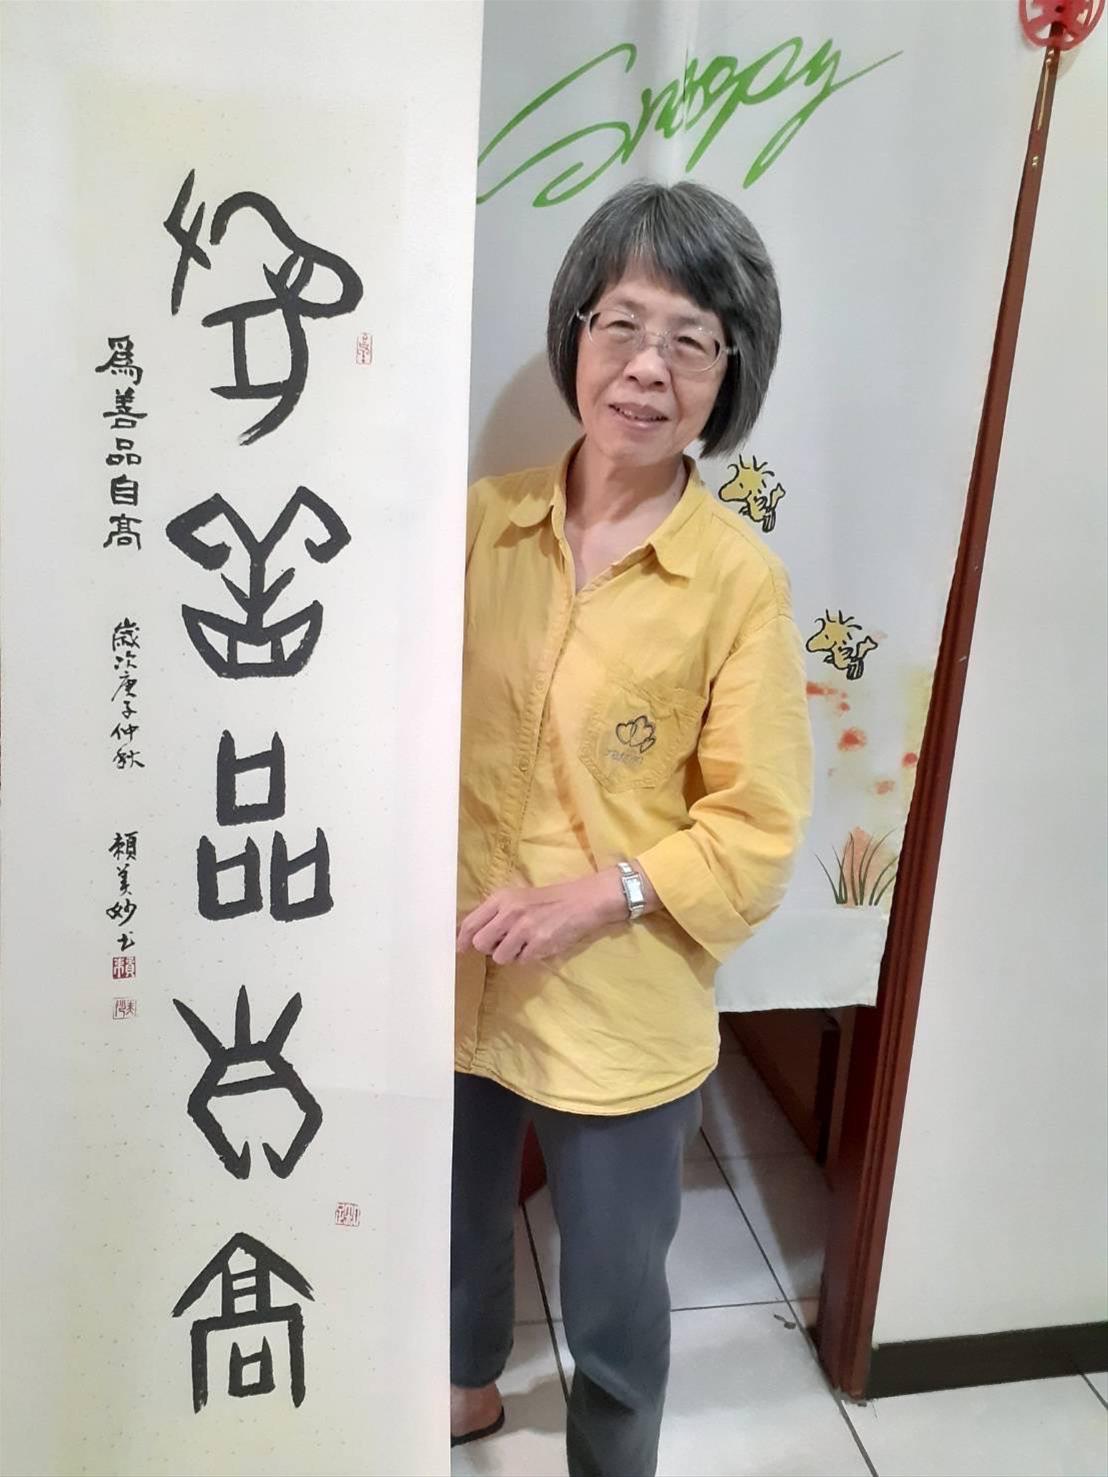 爲善品自高
爲善品自高 歲次庚子仲秋 賴美妙书
Snoopy